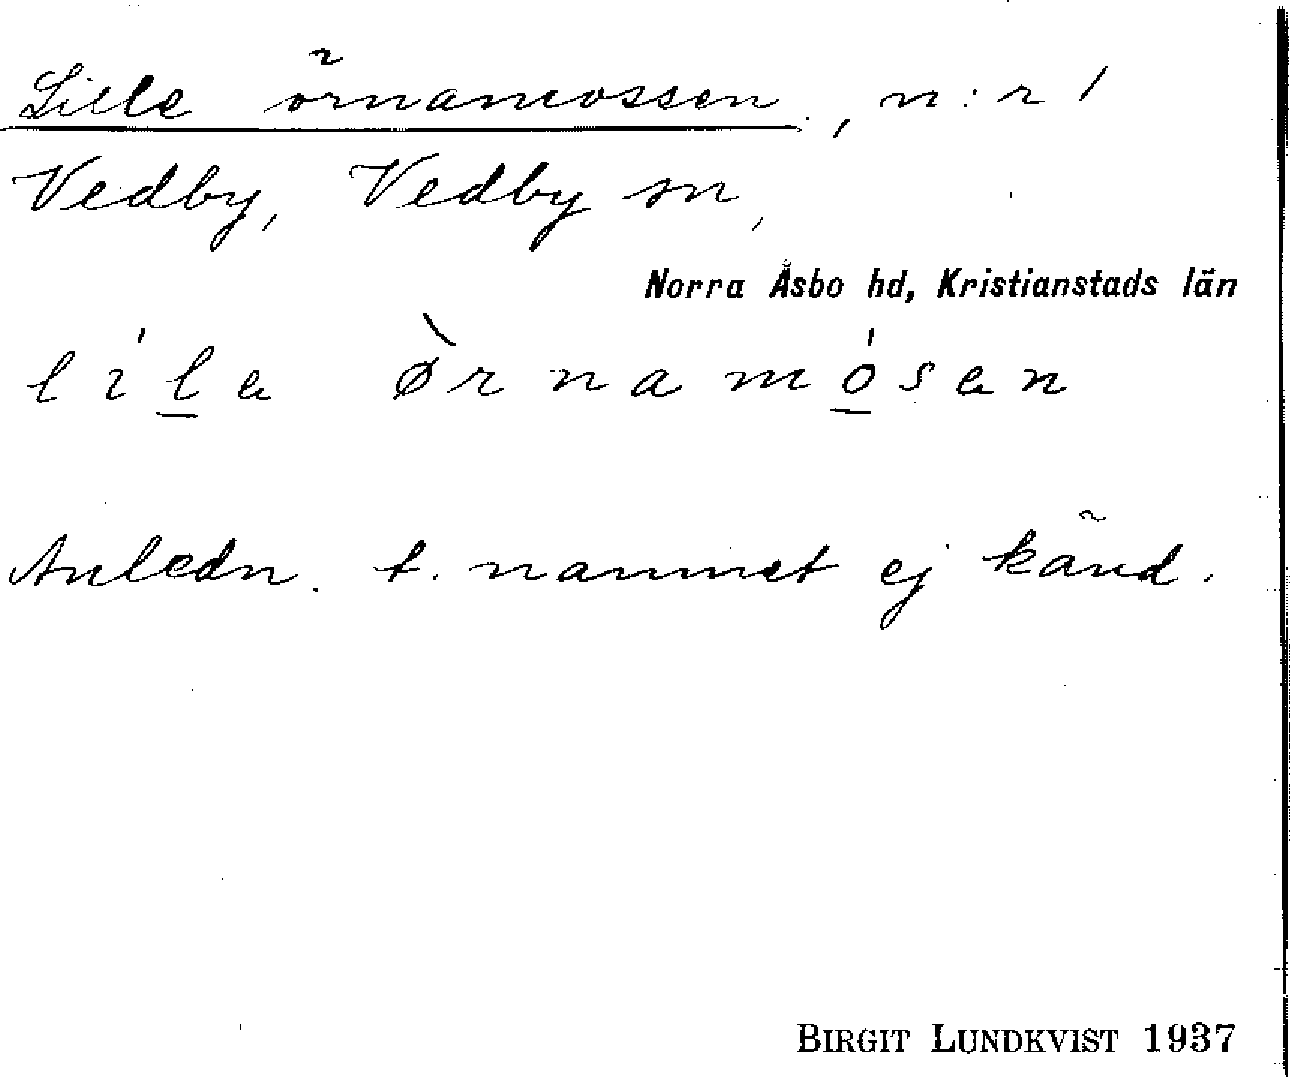 Lille örnamossen, n:r 1
Vedby, Vedby sn,
Norra Åsbo hd, Kristianstads län
líl̲a ørnamó̲san
Anledn. t. namnet ej känd.
BIRGIT LUNDKVIST 1937